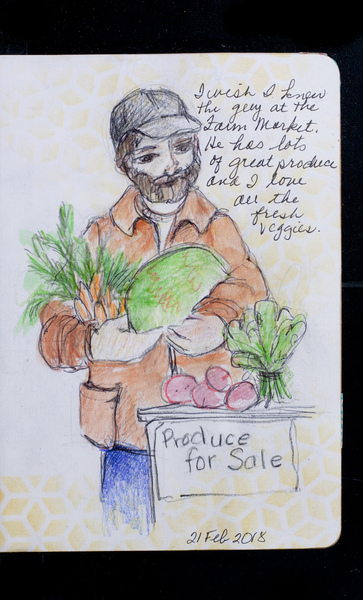 I wish I knew
the guy at the
Farm Market.
He has lots
of great produce
and I love
all the
fresh
veggies.
Produce
for Sale
21 Feb 2018